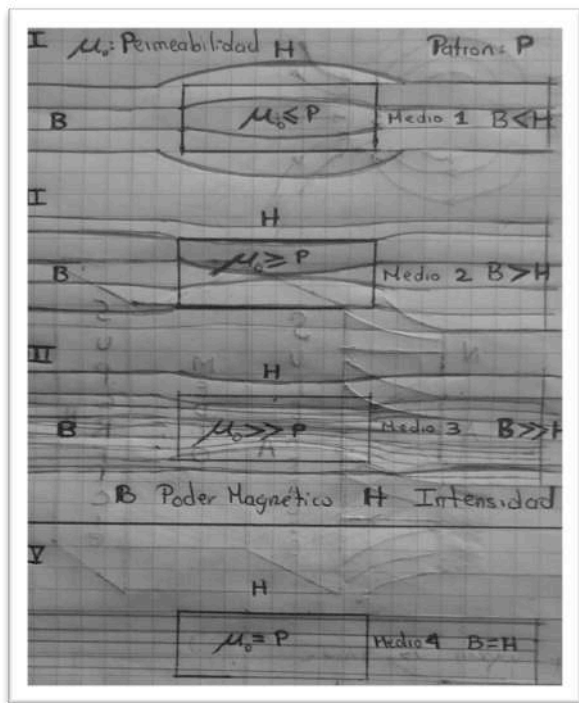 I μ₀: Permeabilidad H Patron: P
B μ₀≤P Medio 1 B<H
I H
B μ₀≥P Medio 2 B>H
II H
B μ₀>>P Medio 3 B>>H
B Poder Magnético H Intensidad
V H
μ₀=P Medio 4 B=H